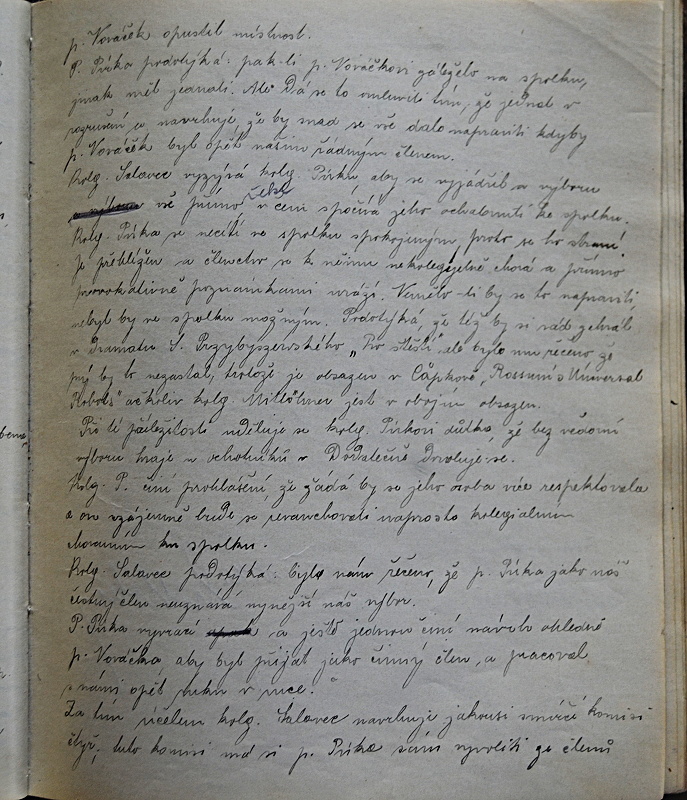 p. Nováček opustil místnost.
P. Pírka podotýká: pak-li p. Nováčkovi záleželo na spolku,
jinak měl jednati. Ale Dá se to omluviti tím, že jednal v
rozrušení a navrhuje, že by snad se vše dalo napraviti kdyby
p. Nováček byl opět naším řádným členem.
Kolg. Salavec vyzývá kolg. Pírku aby se vyjádřil o výboru
vše přímo řekl v čem spočívá jeho ochabnutí ke spolku.
Kolg. Pírka se necítí ve spolku spokojeným, proto se to straní,
je přehlížen a členstvo se k němu nekolegielně chová a přímo
provokativně poznámkami uráží. Nemělo-li by se to napraviti
nebyl by ve spolku možným. Podotýká, že též by si rád zehrál
v Dramatu S. Przybyszewského „Pro štěstí" ale bylo mu řečeno že
prý by to nezastal, jelikož je obsazen v Čapkově „Rossum's Universal
Robots" ačkoliv kolg. Mitlöhner jest v obojím obsazen.
Při té příležitosti uděluje se kolg. Pírkovi důtka, že bez vědomí
výboru hraje u ochotníků v
Kolg. P. činí prohlášení, že žádá by se jeho osoba více respektovala
a on vzájemně bude se revanchovati naprosto kolegialním
chováním ku spolku.
Kolg. Salavec podotýká: bylo nám řečeno, že p. Pírka jako náš
čestný člen neuznává nynější náš výbor.
P. Pírka vyvrací a ještě jednou činí návrh ohledně
p. Nováčka aby byl přijat jako činný člen, a pracoval
s námi opět ruku v ruce.
Za tím účelem kolg. Salavec navrhuje jakousi smírčí komisi
čtyř, tuto komisi má si p. Pírka sám zvoliti ze členů